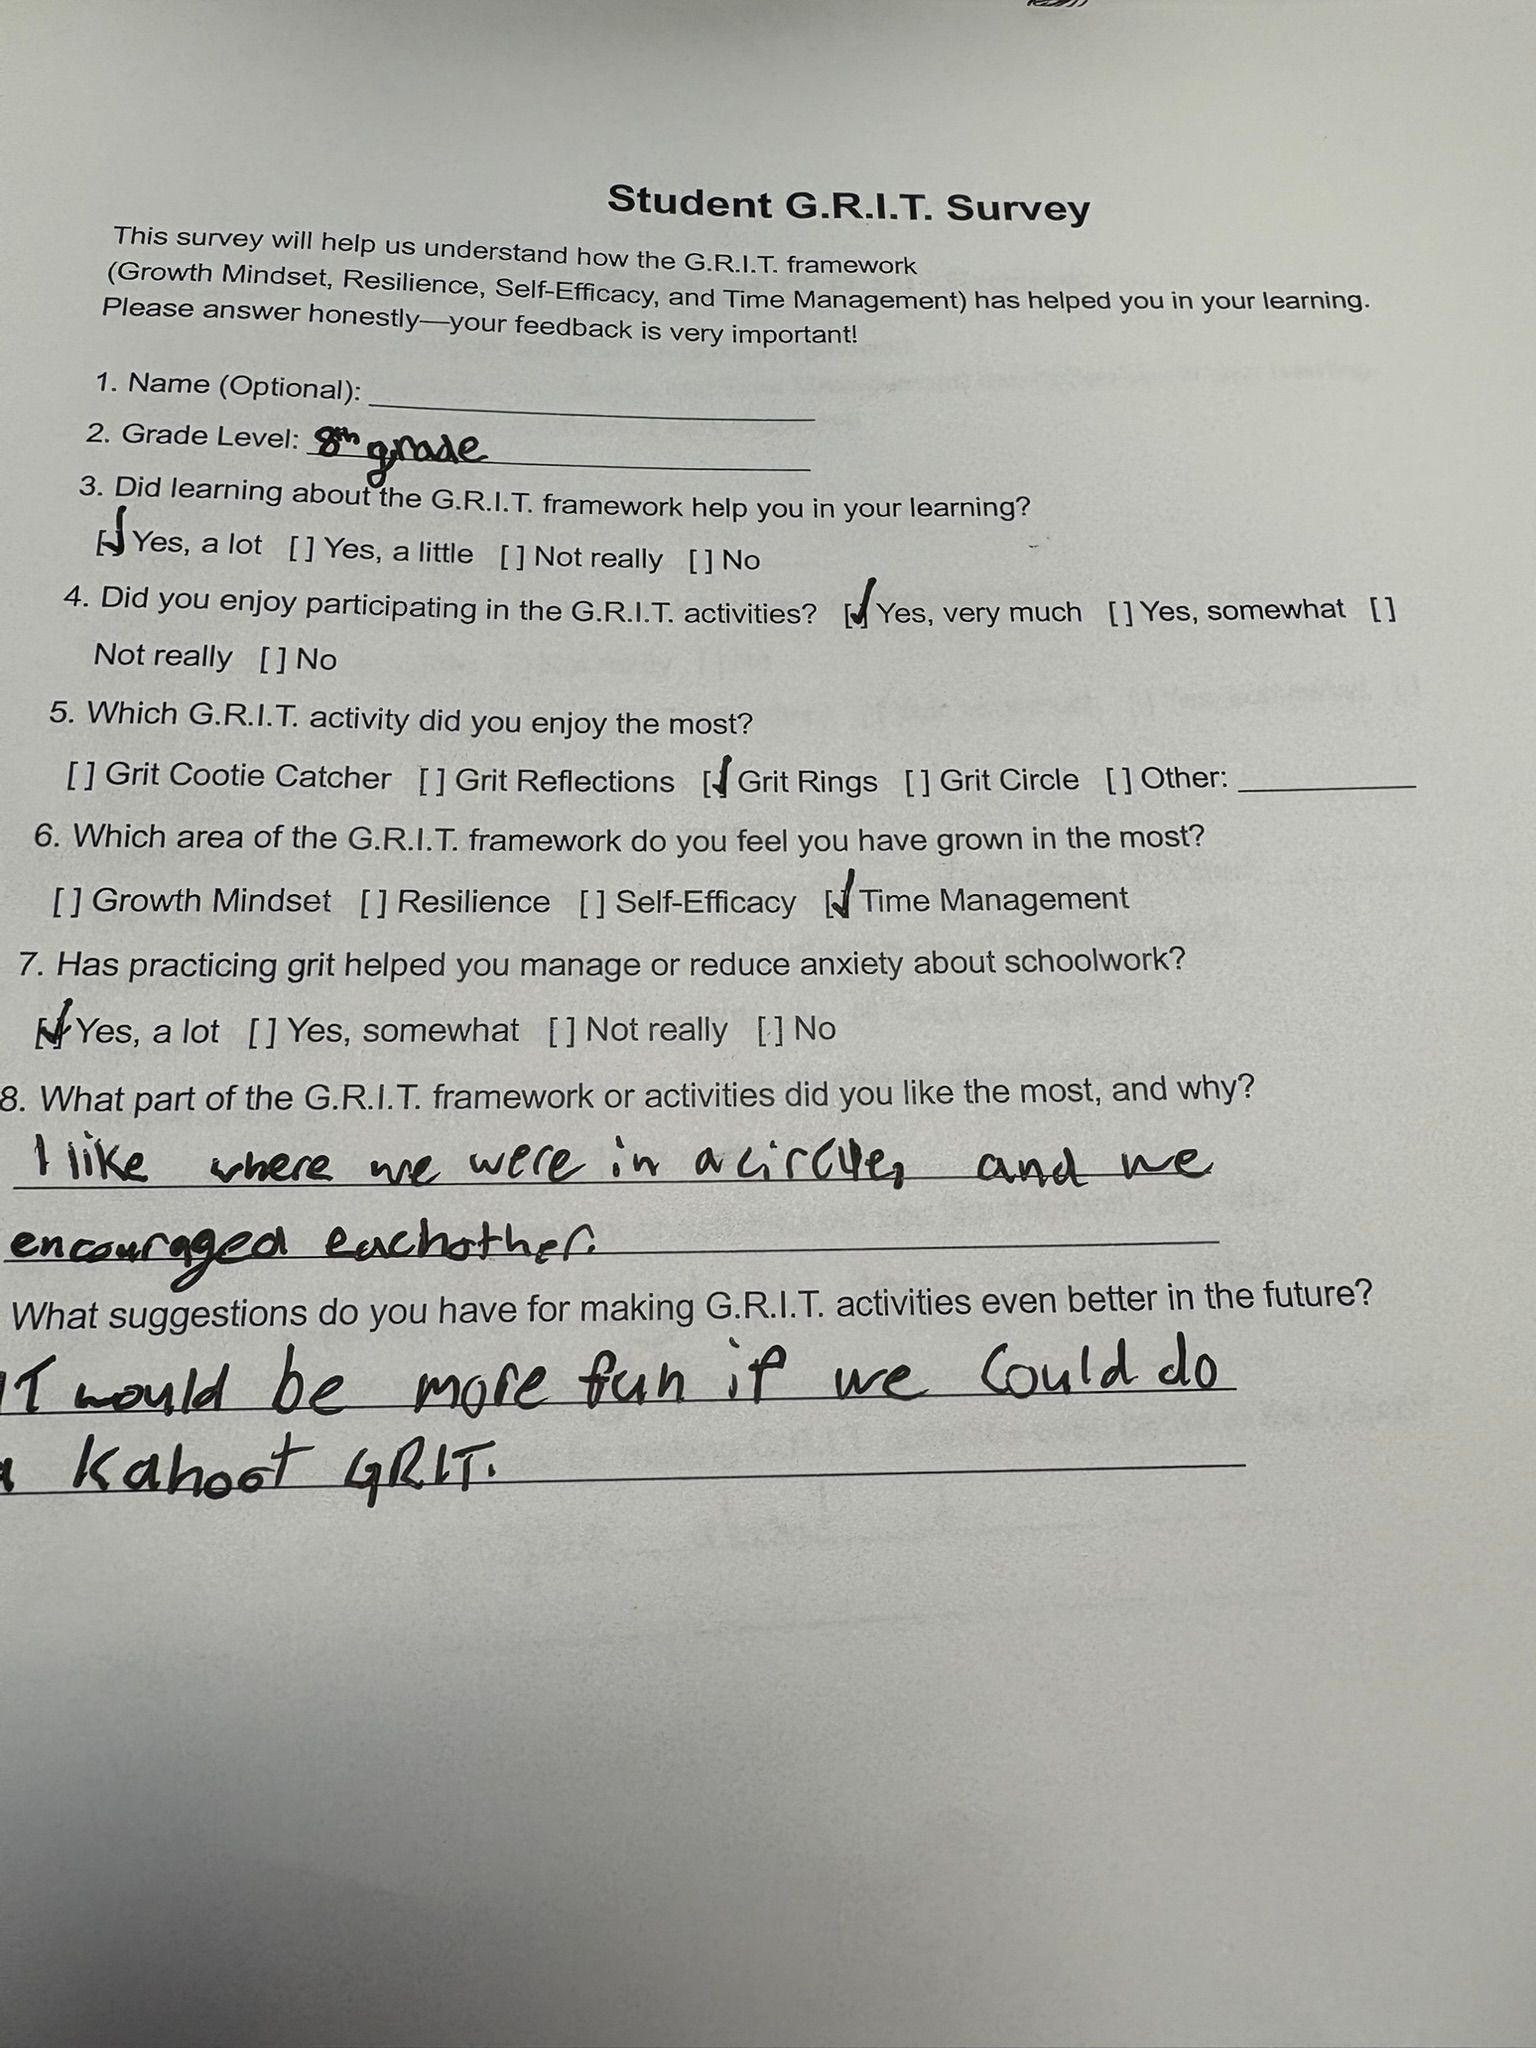 Student G.R.I.T. Survey
This survey will help us understand how the G.R.I.T. framework
(Growth Mindset, Resilience, Self-Efficacy, and Time Management) has helped you in your learning.
Please answer honestly—your feedback is very important!
1. Name (Optional):
2. Grade Level: 8th grade
3. Did learning about the G.R.I.T. framework help you in your learning?
[✓] Yes, a lot [ ] Yes, a little [ ] Not really [ ] No
4. Did you enjoy participating in the G.R.I.T. activities? [✓] Yes, very much [ ] Yes, somewhat [ ]
Not really [ ] No
5. Which G.R.I.T. activity did you enjoy the most?
[ ] Grit Cootie Catcher [ ] Grit Reflections [✓] Grit Rings [ ] Grit Circle [ ] Other:
6. Which area of the G.R.I.T. framework do you feel you have grown in the most?
[ ] Growth Mindset [ ] Resilience [ ] Self-Efficacy [✓] Time Management
7. Has practicing grit helped you manage or reduce anxiety about schoolwork?
[✓] Yes, a lot [ ] Yes, somewhat [ ] Not really [ ] No
8. What part of the G.R.I.T. framework or activities did you like the most, and why?
I like where we were in a circle, and we
encouraged eachother.
What suggestions do you have for making G.R.I.T. activities even better in the future?
IT would be more fun if we could do
a Kahoot GRIT.